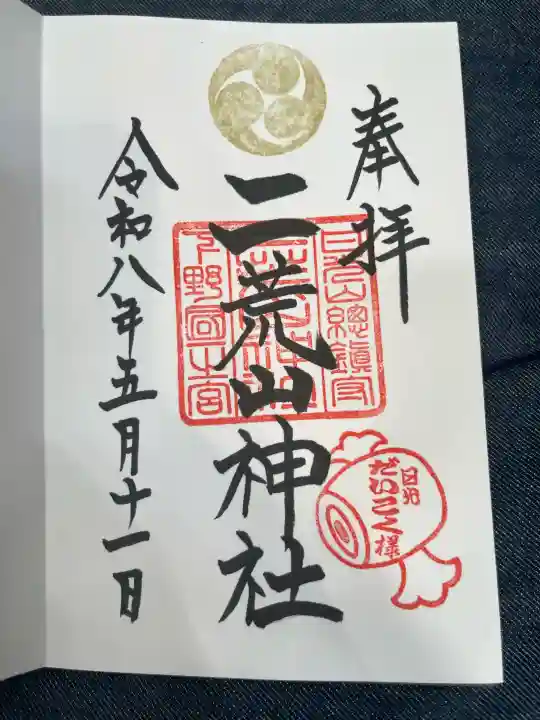 奉拝
日光山總鎮守
二荒山神社
下野國一宮
日光
だいこく様
令和八年五月十一日